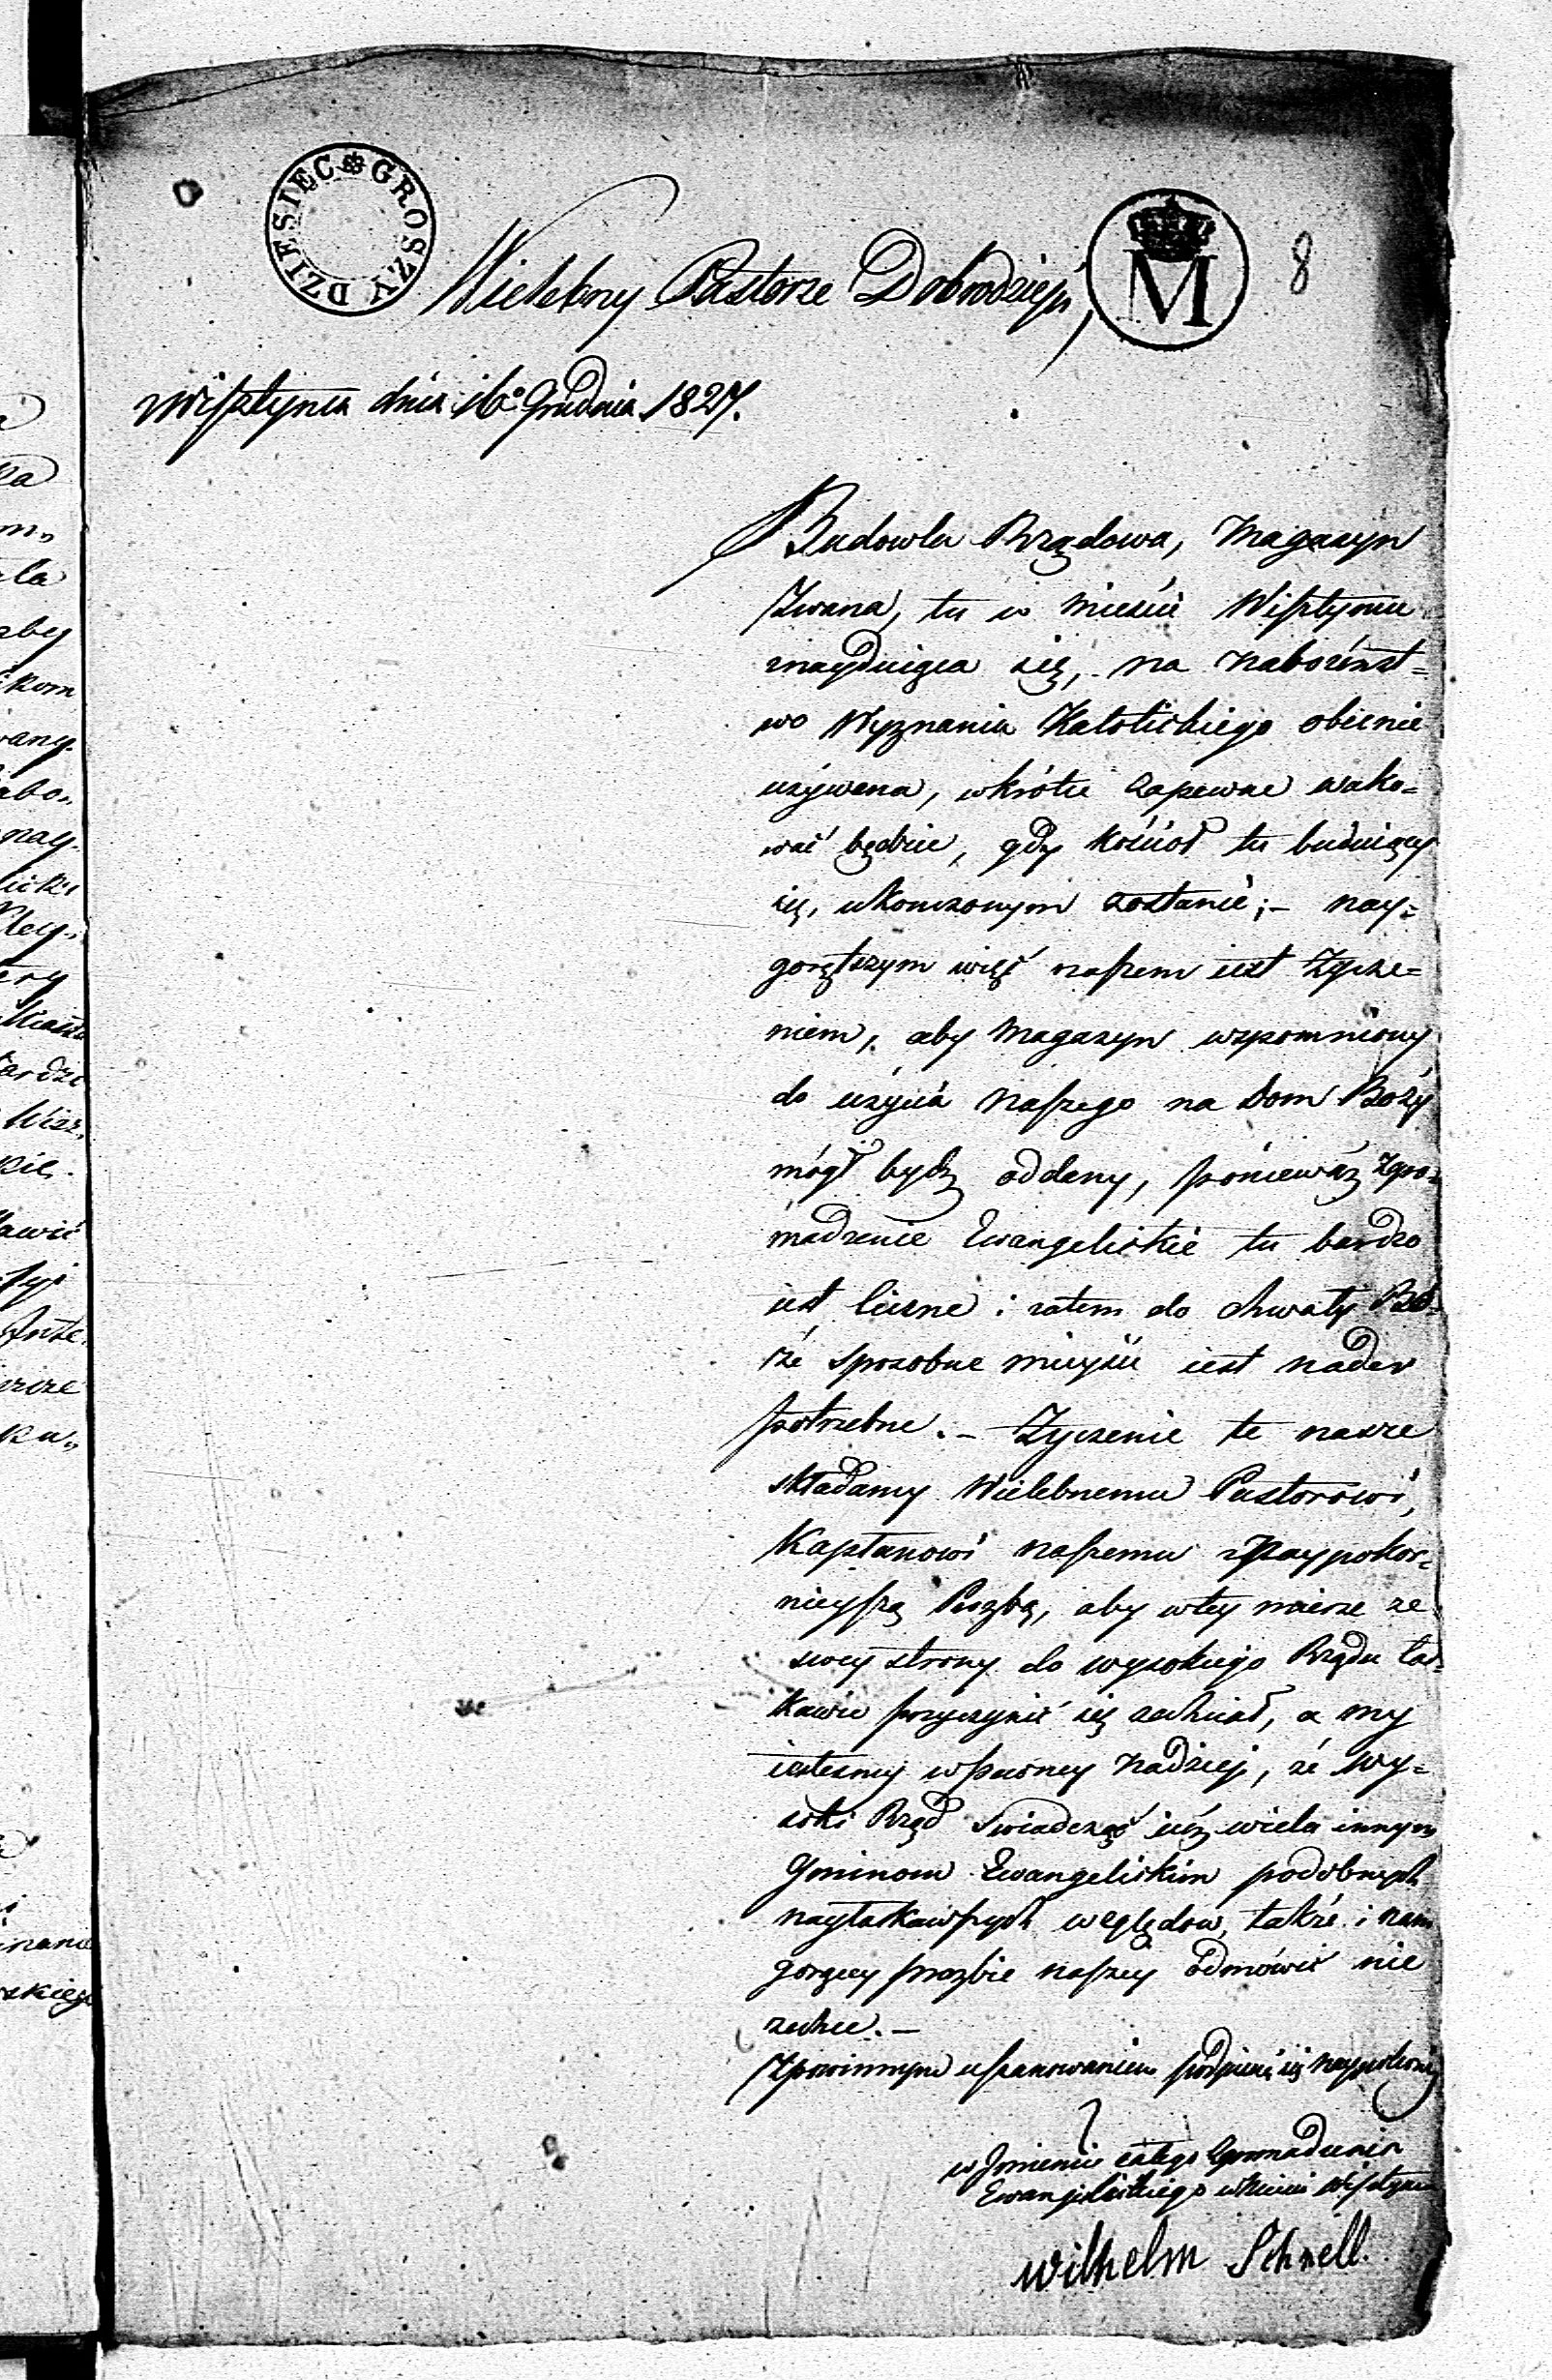 DZIESIĘC GROSZY
M
8
Wielebny Pastorze Dobrodzieju,
Wisztyniec dnia 16º Grudnia 1827.
Budowla Rządowa, Magazyn
Zwana, tu w mieście Wisztyńcu
znayduiąca się, na nabożeńst=
wo Wyznania Katolickiego obecnie
używana, wkrótce zapewne wako=
wać będzie, gdy kościoł tu buduiący
się, ukonczonym zostanie; – nay=
gorętszym więć naszem iest życze=
niem, aby Magazyn wspomniony
do użycia naszego na Dom Boży
mógł bydź oddany, ponieważ Zgro=
madzenie Ewangelickie tu bardzo
iest liczne i zatem do chwały Bo=
że sposobne mieysce iest nader
potrzebne. – Życzenie te nasze
składamy Wielebnemu Pastorowi,
Kapłanowi naszemu z Naypokor=
nieyszą Prozbą, aby wtey mierze ze
swey strony do wysokiego Rządu łas=
kawie przyczynić się zechciał, a my
iestesmy wpewney nadzieji, że Wy=
soki Rząd swiadcząć iuż wielu innym
Gminom Ewangelickim podobnych
nayłaskawszych względow, także i nam
gorącey prozbie naszey odmówić nie
zechce. –
Z powinnym uszanowaniem podpisuię się naypokorniey
w Jmieniu całego Zgromadzenia
Ewangelickiego w Mieście Wisztyńcu
Wilhelm Schnell.